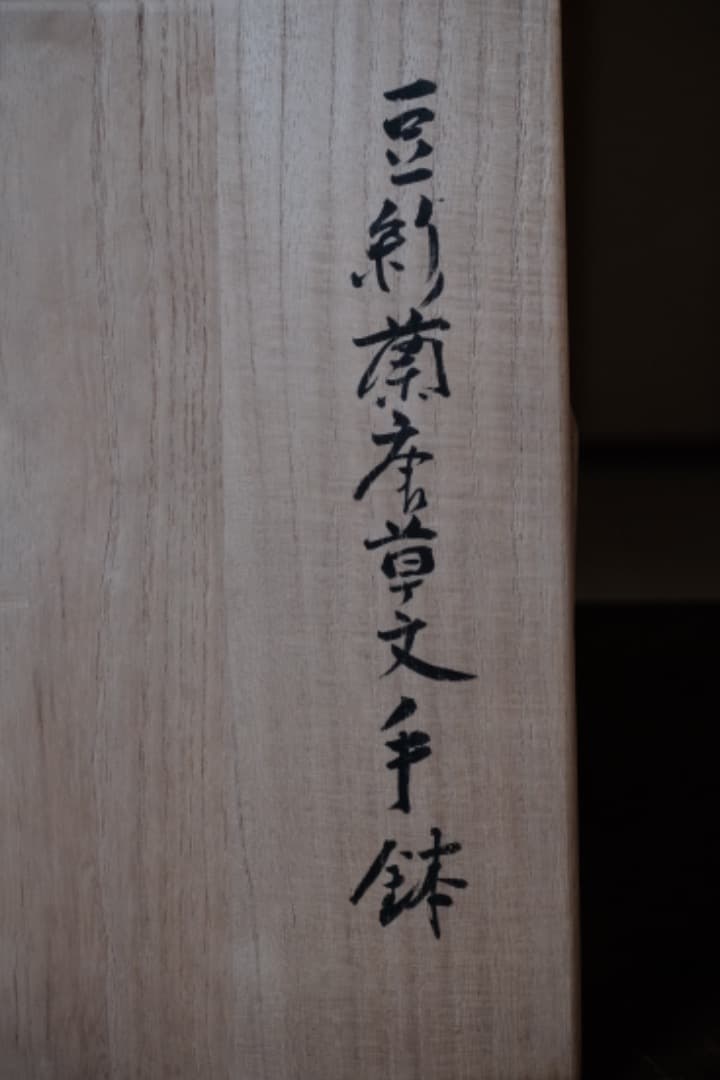 豆彩蘭唐草文手鉢